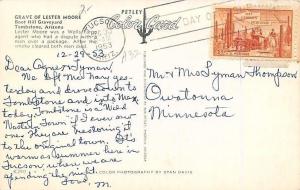 GRAVE OF LESTER MOORE
Boot Hill Graveyard
Tombstone, Arizona
Lester Moore was a Wells-Fargo
agent who had a dispute with a
man over a package. After the
smoke cleared both men died.
PETLEY
Color Card
TUCSON
1953
ARIZ.
DAY O
12-29-53
Dear Agnes & Lyman
We left Nogales
yesterday and drove down to
Tombstone and into Mex.
today. Tombstone is a Wild
Western Town if I ever saw
one. They are restoring it
to the original town. It's
warm as summer here in
Tucson where we are
spending the night.
Love, M.
Mr & Mrs Lyman Thompson
Owatonna
Minnesota
COLOR PHOTOGRAPHY BY STAN DAVIS